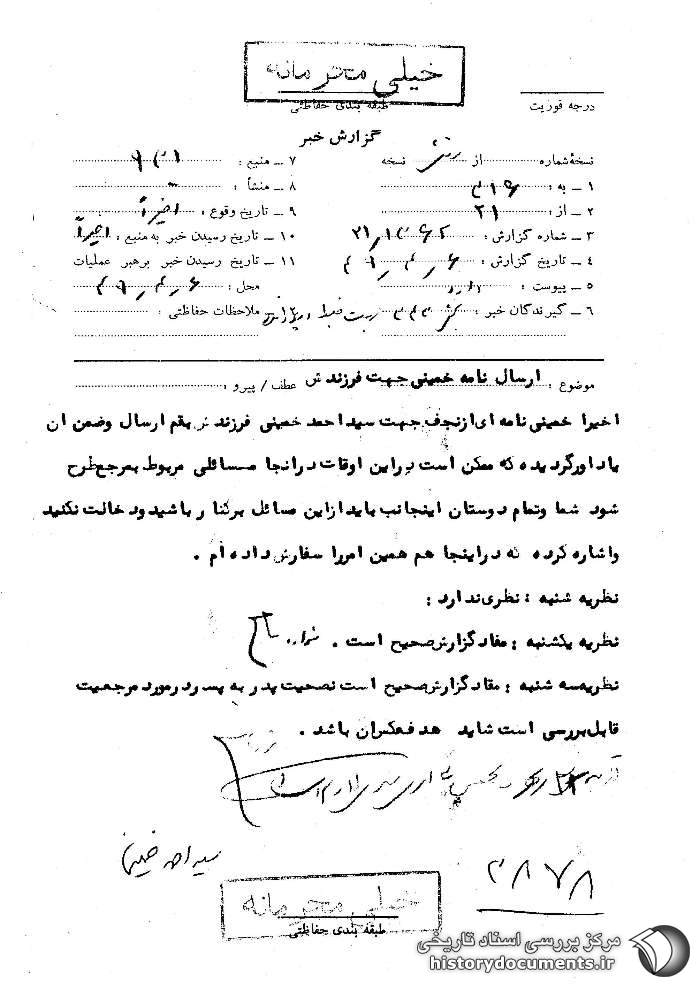 خیلی محرمانه
طبقه بندی حفاظتی
درجه فوریت
گزارش خبر
نسخهٔ شماره از نسخه
۷ ــ منبع :
۱ ــ به : ۳۱۶
۸ ــ منشأ :
۲ ــ از : ۲۱
۹ ــ تاریخ وقوع : اخیراً
۳ ــ شماره گزارش :
۱۰ ــ تاریخ رسیدن خبر به منبع : اخیراً
۴ ــ تاریخ گزارش : ۴۹٫۴٫۶
۱۱ ــ تاریخ رسیدن خبر برهبر عملیات
۵ ــ پیوست :
محل : ۴۹٫۴٫۶
۶ ــ گیرندگان خبر :
ملاحظات حفاظتی :
موضوع : ارسال نامه خمینی جهت فرزندش عطف / پیرو :
اخیرا خمینی نامه ای ازنجف جهت سید احمد خمینی فرزندش بقم ارسال وضمن ان
یاد اورگردیده که ممکن است در این اوقات در انجا مسائلی مربوط بمرجع طرح
شود شما وتمام دوستان اینجانب باید از این مسائل برکنار باشید ودخالت نکنید
واشاره کرده که در اینجا هم همین امر را سفارش داده ام .
نظریه شنبه : نظری ندارد :
نظریه یکشنبه : مفاد گزارش صحیح است .
نظریه سه شنبه : مفاد گزارش صحیح است نصحیت پدر به پسر در مورد مرجعیت
قابل بررسی است شاید هدفعکس ان باشد .
سید احمد خمینی
۲۸۷۸
خیلی محرمانه
طبقه بندی حفاظتی
مرکز بررسی اسناد تاریخی
historydocuments.ir